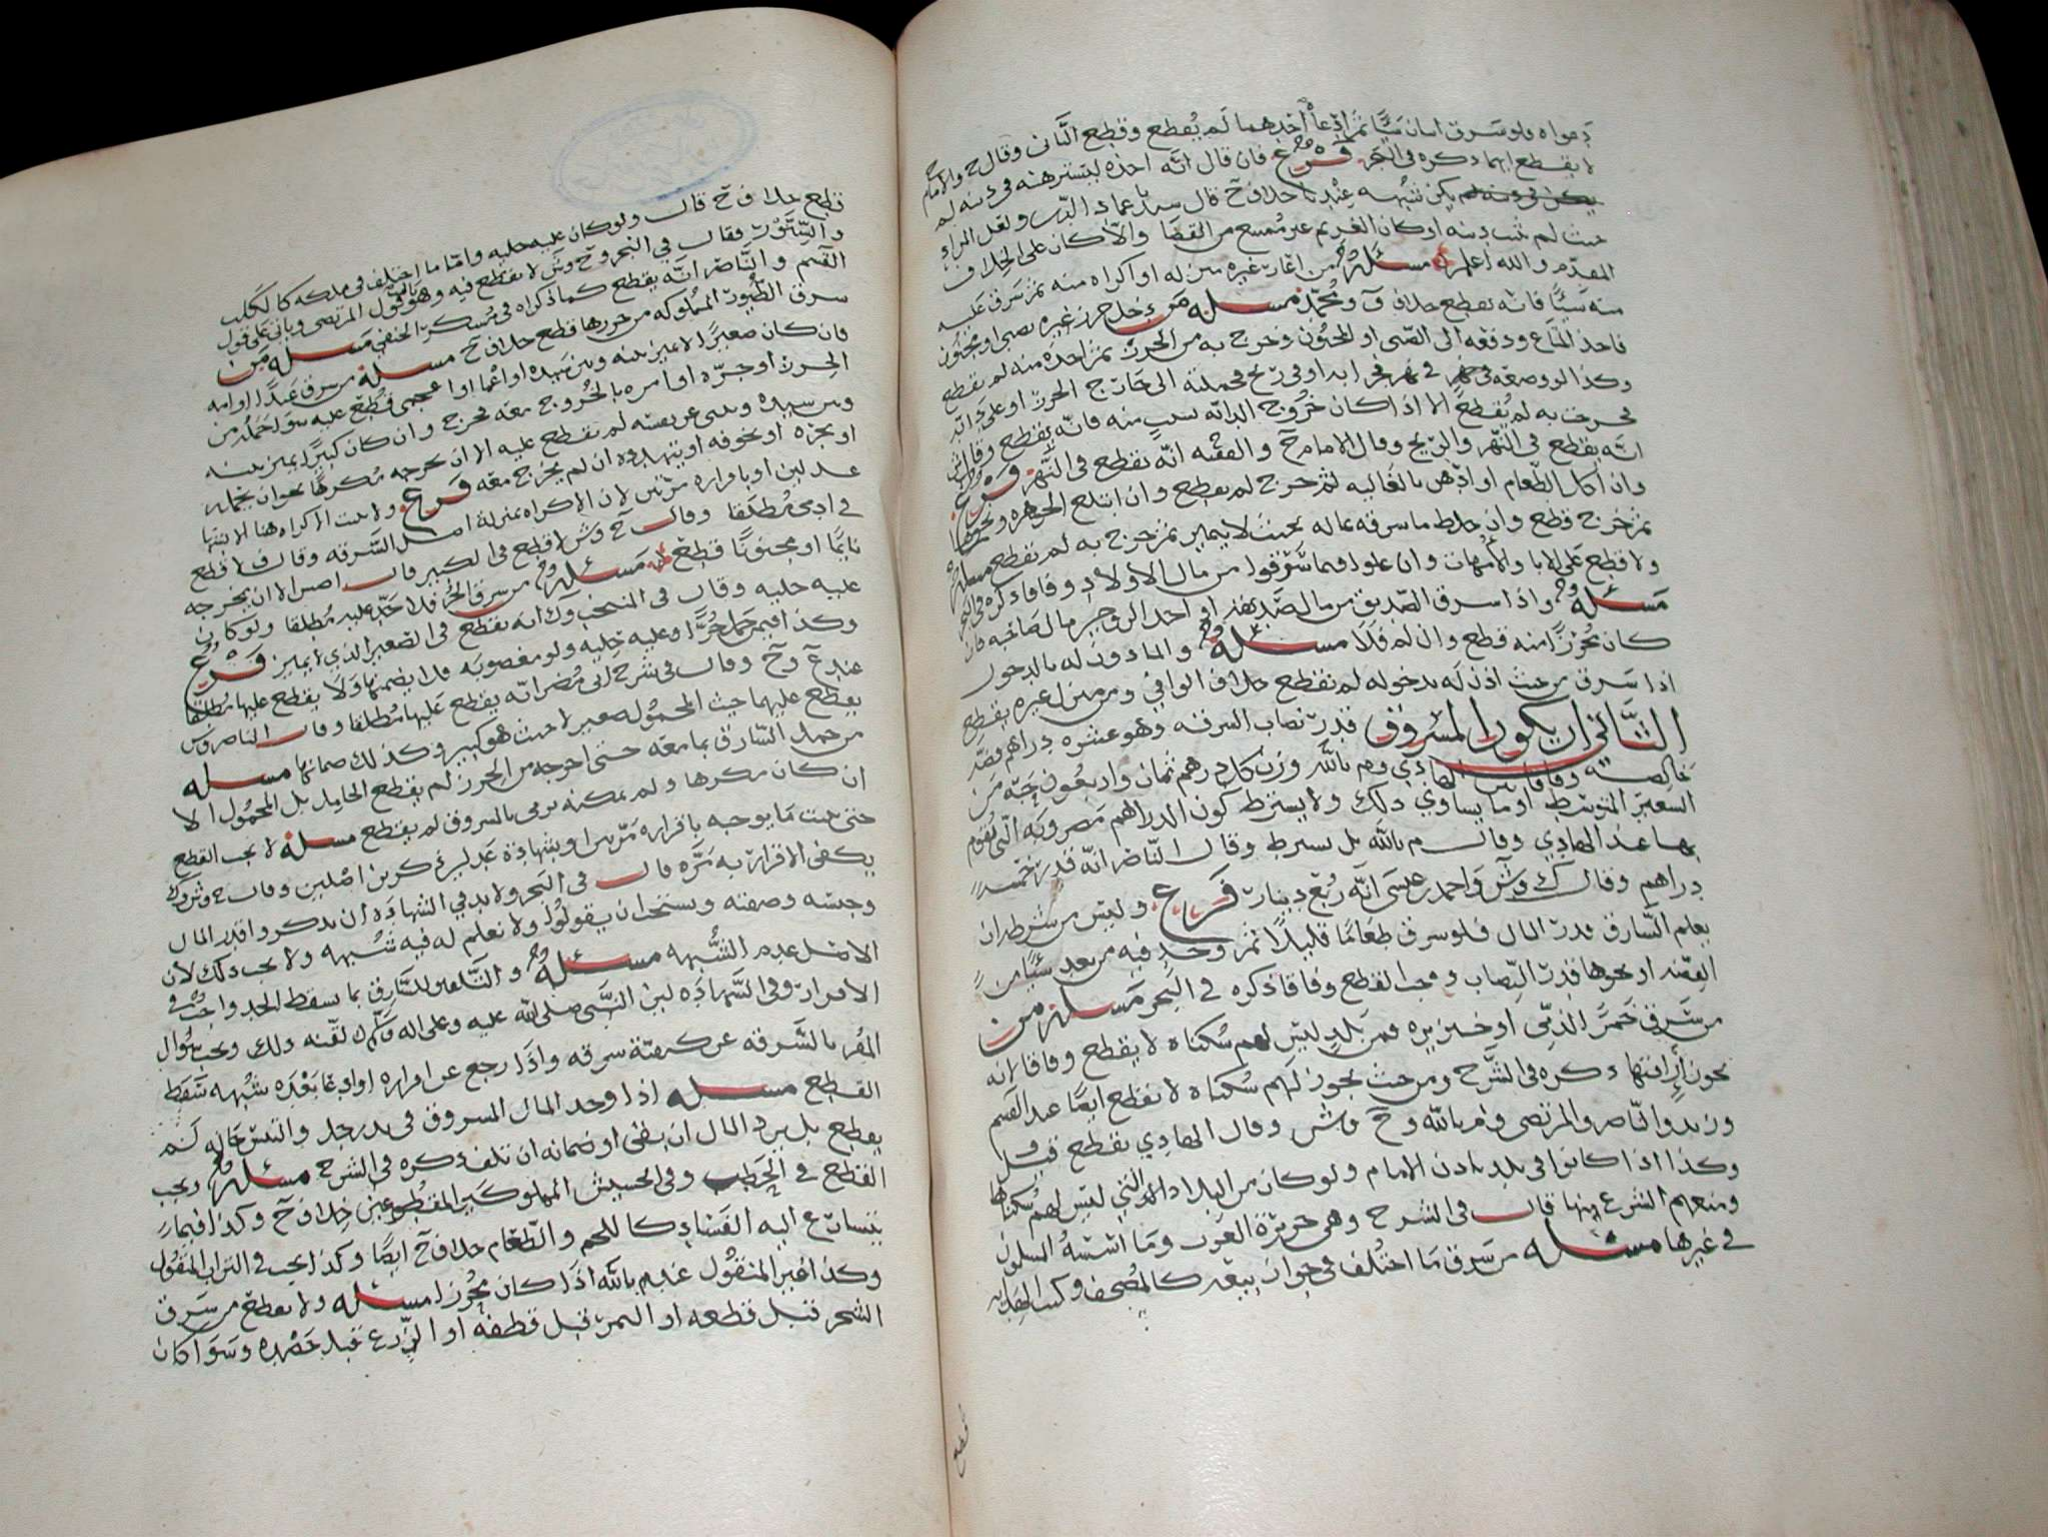 دعواه فلو سرق اثنان شيًا ثم ادعا احدهما لم يُقطع وقطع الثانى وقال ح والامام
لا يقطع ايهما ذكره فى البحر فرع فان قال انه اخذه ليسترهنه فى دينه لم
يكن شبهه عندنا خلاف ح قال سيدنا عماد الدين ولعل المراد
حيث لم يثبت دينه او كان الغريم غير ممتنع من القضا والا كان على الخلاف
المقدم والله اعلم مسئله من اعار غيره منزله او اكراه منه ثم سرق عليه
منه شيئًا فانه يقطع خلاف ومحمد مسئله من دخل حرز غيره بصبى او مجنون
فاخذ المتاع ودفعه الى الصبى او المجنون وخرج به من الحرز ثم اخذه منه لم يقطع
وكذا لو وضعه فى نهر فجرا به او فى ريح فحملته الى خارج الحرز او على دابه
فخرجت به لم يُقطع الا اذا كان خروج الدابه بسبب منه فانه يقطع وقال ش
انه يقطع فى النهر والريح وقال الامام ح والفقيه انه يقطع فى النهر فرع
وان اكل الطعام او ادهن بالغاليه ثم خرج لم يقطع وان ابتلع الجوهره ونحوها
ثم خرج قطع وان خلط ما سرقه بماله بحيث لا يتميز ثم خرج به لم يقطع مسئله
ولا قطع على الابا والامهات وان علوا فيما سرقوا من مال الاولاد وفاقا ذكره فى البحر
مسئله واذا سرق الصديق من مال صديقه او احد الزوجين من مال صاحبه فان
كان محرزًا منه قطع وان لم فلا مسئله والماذون له بالدخول
اذا سرق من حيث اذن له بدخوله لم يقطع خلاف الوافى ومن منزل غيره يقطع
الثانى ان يكون المسروق قدر نصاب السرقه وهو عشره دراهم فضه
خالصه وفاقا بين الهادي وم بالله وزن كل درهم ثمان واربعون حبه من
الشعير المتوسط او ما يساوي ذلك ولا يشترط كون الدراهم مضروبه التى يقوم
بها عند الهادي وقال م بالله بل يشترط وقال الناصر انه قدر خمسه
دراهم وقال ك وش واحمد بن عيسى انه ربع دينار فرع وليس من شرطه ان
يعلم السارق قدر المال فلو سرق طعامًا قليلًا ثم وجد فيه من بعد شيئًا من
الفضه او نحوها قدر النصاب وجب القطع وفاقا ذكره فى البحر مسئله من
من سرق خمر الذمى او خنزيره فمن بلد ليس لهم سكناه لا يقطع وفاقا لانه
يجوز اراقتها ذكره فى الشرح ومن حيث يجوز لهم سكناه لا يقطع ايضًا عند القسم
وزيد والناصر والمرتضى وم بالله وح وش وقال الهادي يقطع قيل
وكذا اذا كانوا فى بلد باذن الامام ولو كان من البلاد التى ليس لهم سكناها
ومنعهم الشرع منها قال فى الشرح وهى جزيرة العرب وما اشبه المسلمون
فى غيرها مسئله من سرق ما اختلف فى جواز بيعه كالمصحف وكتب الهدايه
قطع
قطع خلاف ح قال ولو كان عليه حليه واما ما اختلف فى ملكه كالكلب
والسنور فقال فى البحر وح وش لا يقطع فيه وهو قول المرتضى وياتى على قول
القسم والناصر انه يقطع كما ذكراه فى مسكر الحنفى مسئله من
سرق الطيور المملوكه من حرزها قطع خلاف ح مسئله من سرق عبدًا او امه
فان كان صغيرًا لا يميز بينه وبين سيده او اعما او اعجمى قطع عليه سوا حمله من
الحرز او جره او امره بالخروج معه فخرج وان كان كبيرًا يميز بينه
وبين سيده عن نفسه لم يقطع عليه الا ان يخرجه مكرهًا نحو ان يحمله
او يجره او يخوفه او يتهدده ان لم يخرج معه فرع ولا يثبت الاكراه هنا الا بشها
عدلين او باقراره مرتين لان الاكراه بمنزلة اصل السرقه وقال ف لا قطع
فى ادمى مُطلقا وقال ح وش لا قطع فى الكبير قال اصش الا ان يخرجه
نايمًا او مجنونًا قطع مسئله من سرق الحر فلا حد عليه مُطلقا ولو كان
عليه حليه وقال فى المنتخب وك انه يقطع فى الصغير الذي لا يميز فرع
وكذا فيمن حمل حُرًا وعليه حليه ولو مغصوبه فلا يضمنها ولا يقطع عليها مُطلقًا
عند ع وح وقال فى شرح ابى مُضر انه يقطع عليها مُطلقا وقال الناصر وش
يقطع عليها حيث المحمول صغير لا حيث هو كبير وكذلك ضمانها مسئله
من حمل السارق بما معه حتى اخرجه من الحرز لم يقطع الحامل بل المحمول الا
ان كان مكرها ولم يمكنه يرمى بالمسروق لم يقطع مسئله لا يجب القطع
حتى يثبت ما يوجبه باقراره مرتين او بشهادة عدلين ذكرين اصلين وقال ع وش وك
يكفى الاقرار به مره قال فى البحر ولا بد في الشهاده ان يذكروا قدر المال
وجنسه وصفته ويستحب ان يقولوا ولا نعلم له فيه شبهه ولا يجب ذلك لان
الاصل عدم الشبهه مسئله والتلقين للسارق بما يسقط الحد واجب فى
الاقرار وفى الشهاده لان النبى صلى الله عليه وعلى اله وسلم لقنه ذلك ويجب سؤال
المقر بالسرقه عن كيفية سرقه واذا رجع عن اقراره او ادعا بعده شبهه سقط
القطع مسئله اذا وجد المال المسروق فى يد رجل والتبس حاله لم
يقطع بل يرد المال ان بقى او ضمانه ان تلف ذكره فى الشرح مسئله ويجب
القطع فى الحطب وفى الحشيش المملوكين المقطوعين خلاف ح وكذا فيما
يتسارع اليه الفساد كاللحم والطعام خلاف ح ايضًا وكذا يجب فى التراب المنقول
وكذا غير المنقول عند م بالله اذا كان محرزا مسئله ولا يقطع من سرق
الشجر قبل قطعه او الثمر قبل قطفه او الزرع قبل حصده وسوا كان